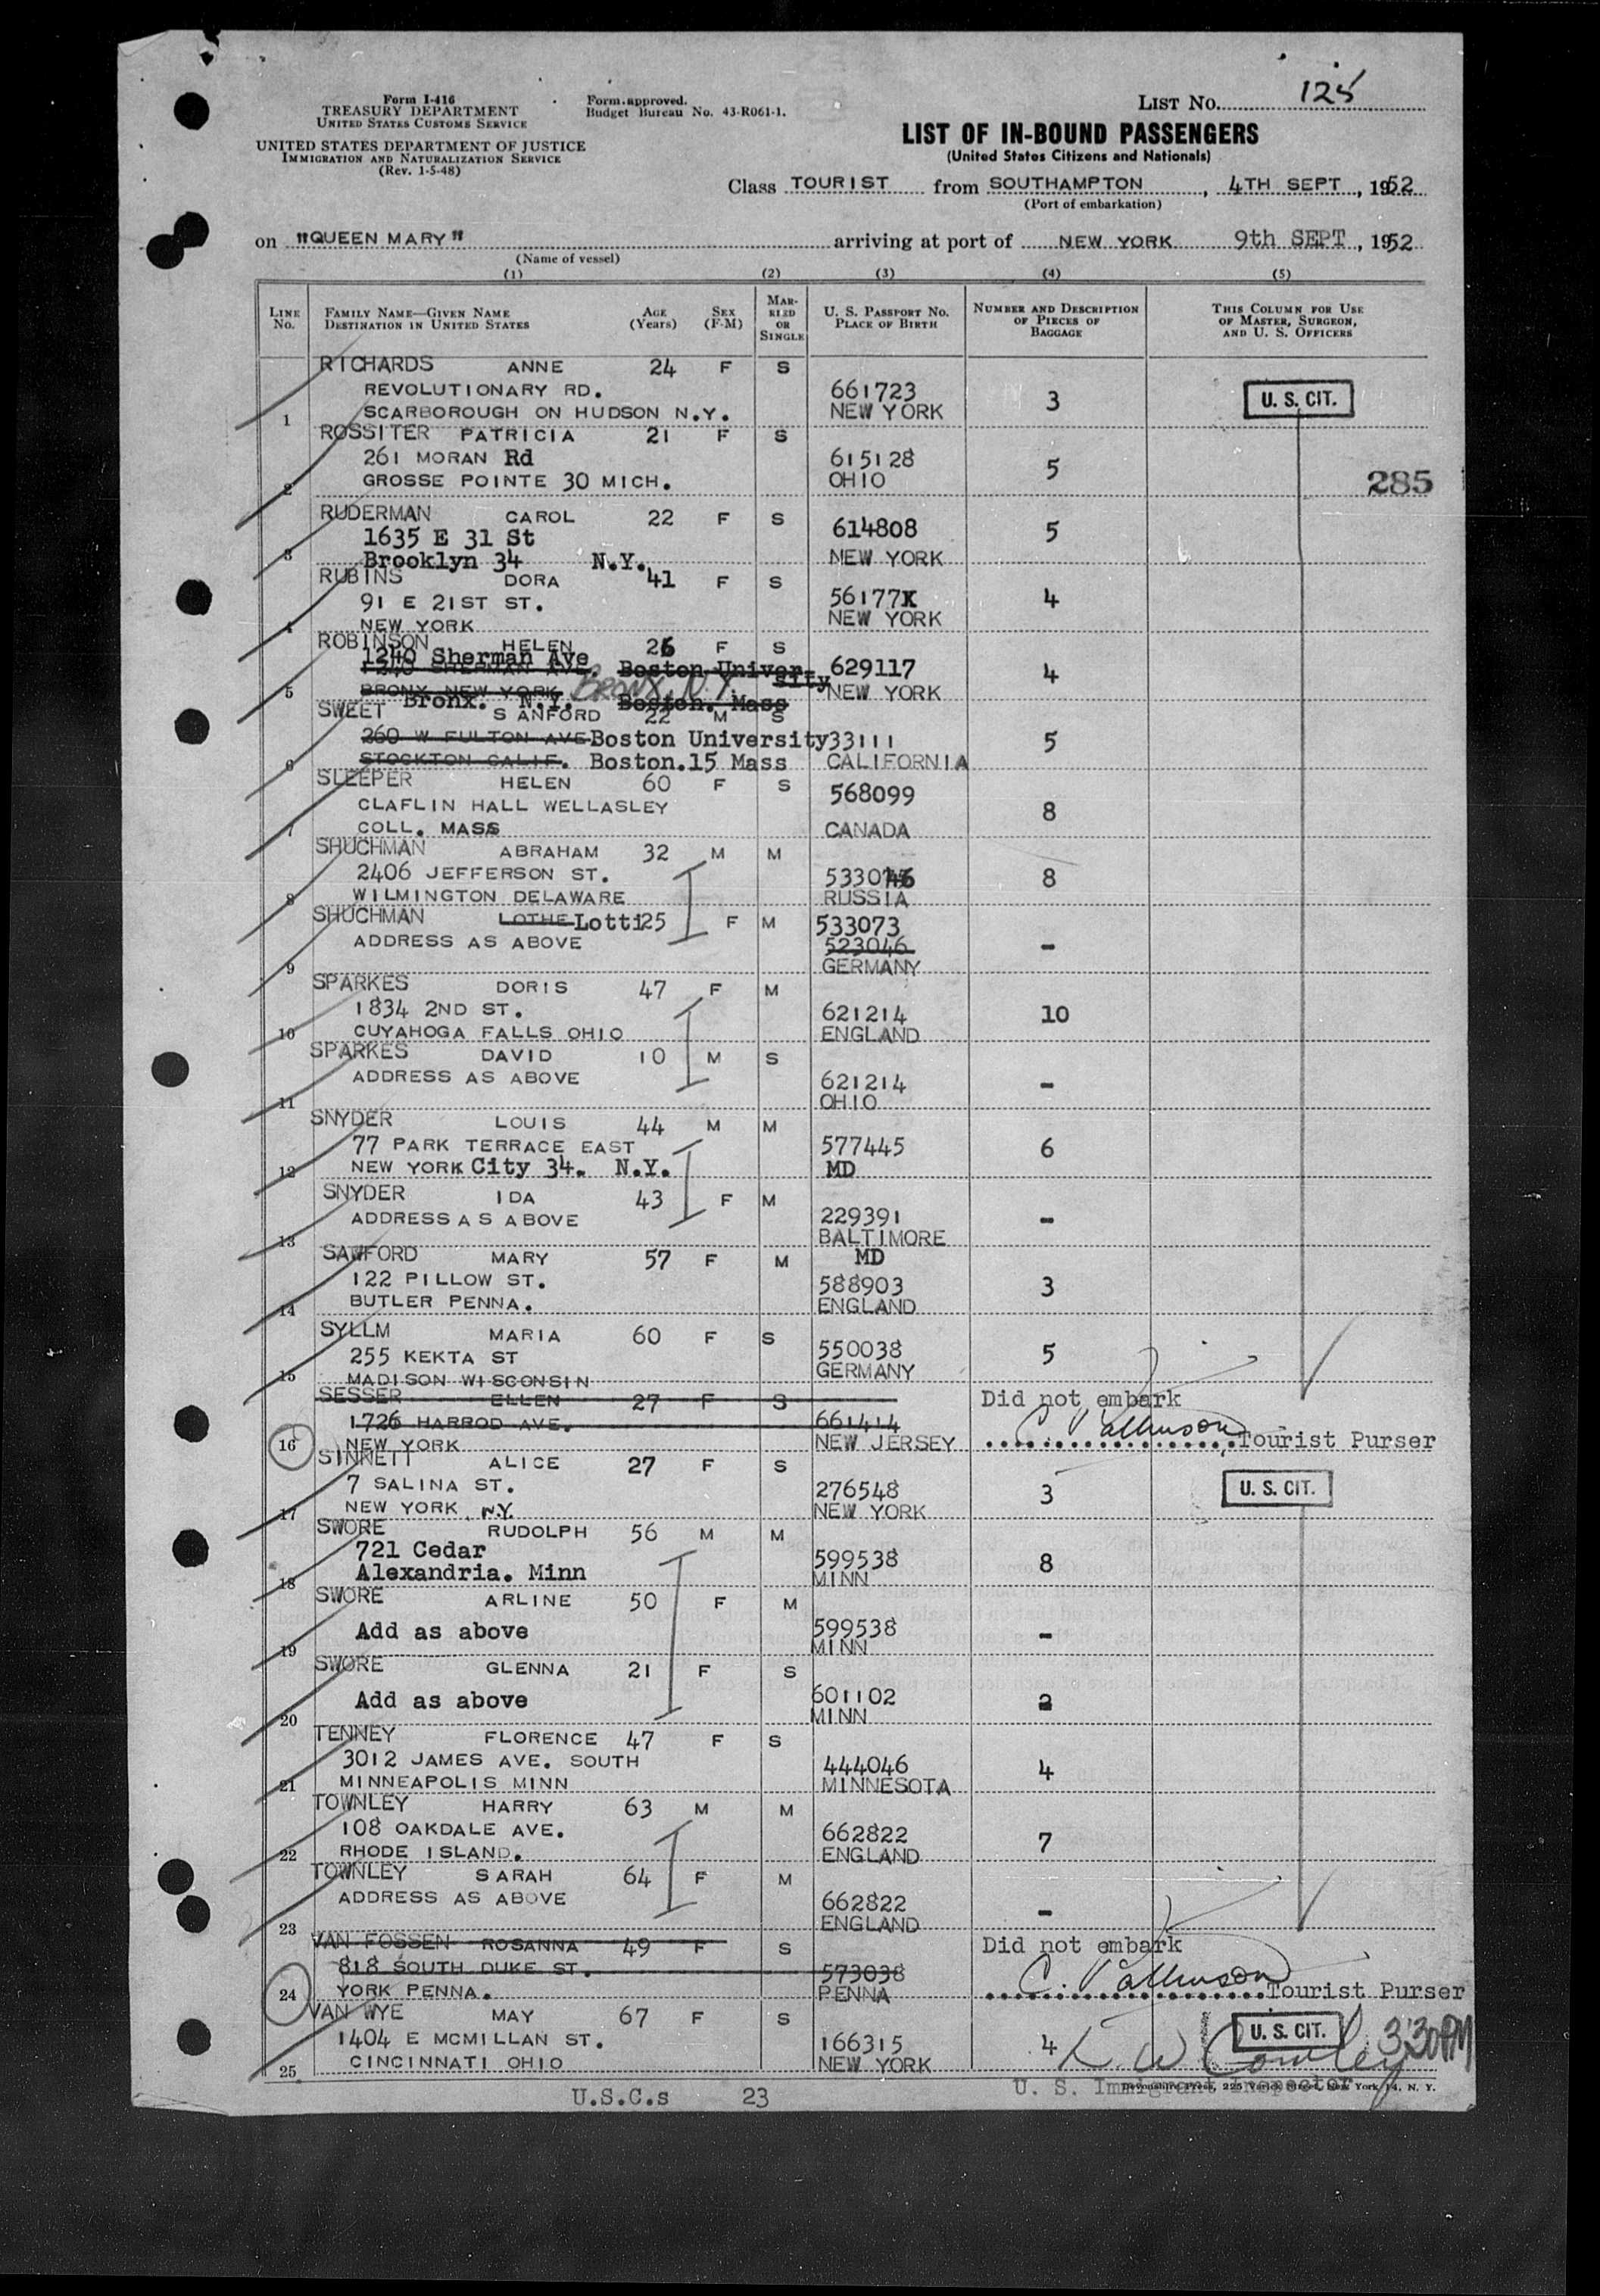 Form I-416
TREASURY DEPARTMENT
UNITED STATES CUSTOMS SERVICE
UNITED STATES DEPARTMENT OF JUSTICE
IMMIGRATION AND NATURALIZATION SERVICE
(Rev. 1-5-48)
Form approved.
Budget Bureau No. 43-R061-1.
LIST NO. 125
LIST OF IN-BOUND PASSENGERS
(United States Citizens and Nationals)
Class TOURIST from SOUTHAMPTON, 4TH SEPT, 1952
(Port of embarkation)
on "QUEEN MARY" arriving at port of NEW YORK 9th SEPT, 1952
(Name of vessel)
(1) (2) (3) (4) (5)
LINE NO.
FAMILY NAME—GIVEN NAME
DESTINATION IN UNITED STATES
AGE (Years)
SEX (F-M)
MARRIED OR SINGLE
U. S. PASSPORT NO.
PLACE OF BIRTH
NUMBER AND DESCRIPTION OF PIECES OF BAGGAGE
THIS COLUMN FOR USE OF MASTER, SURGEON, AND U. S. OFFICERS
RICHARDS ANNE 24 F S
REVOLUTIONARY RD. 661723 3 U. S. CIT.
1 SCARBOROUGH ON HUDSON N.Y. NEW YORK
ROSSITER PATRICIA 21 F S
261 MORAN Rd 615128 5
2 GROSSE POINTE 30 MICH. OHIO 285
RUDERMAN CAROL 22 F S
1635 E 31 St 614808 5
3 Brooklyn 34 N.Y. NEW YORK
RUBINS DORA 41 F S
91 E 21ST ST. 56177X 4
4 NEW YORK NEW YORK
ROBINSON HELEN 26 F S
1240 Sherman Ave
1240 SHERMAN AVE. Boston University 629117 4
5 BRONX NEW YORK BRONX, N.Y. NEW YORK
Bronx. N.Y. Boston. Mass
SWEET SANFORD 22 M S
260 W FULTON AVE Boston University 33111 5
6 STOCKTON CALIF. Boston.15 Mass CALIFORNIA
SLEEPER HELEN 60 F S
CLAFLIN HALL WELLASLEY 568099 8
7 COLL. MASS CANADA
SHUCHMAN ABRAHAM 32 M M
2406 JEFFERSON ST. 8
8 WILMINGTON DELAWARE RUSSIA
SHUCHMAN LOTHE Lotti 25 F M 533073
ADDRESS AS ABOVE 523046 -
9 GERMANY
SPARKES DORIS 47 F M
1834 2ND ST. 621214 10
10 CUYAHOGA FALLS OHIO ENGLAND
SPARKES DAVID 10 M S
ADDRESS AS ABOVE 621214 -
11 OHIO
SNYDER LOUIS 44 M M
77 PARK TERRACE EAST 577445 6
12 NEW YORK City 34. N.Y. MD
SNYDER IDA 43 F M
ADDRESS AS ABOVE 229391 -
13 BALTIMORE
MD
SAWFORD MARY 57 F M
122 PILLOW ST. 588903 3
14 BUTLER PENNA. ENGLAND
SYLLM MARIA 60 F S
255 KEKTA ST 550038 5
15 MADISON WISCONSIN GERMANY
SESSER ELLEN 27 F S Did not embark
1726 HARROD AVE. 661414
16 NEW YORK NEW JERSEY Tourist Purser
SINNETT ALICE 27 F S
7 SALINA ST. 276548 3 U. S. CIT.
17 NEW YORK N.Y. NEW YORK
SWORE RUDOLPH 56 M M
721 Cedar 599538 8
18 Alexandria. Minn MINN
SWORE ARLINE 50 F M
Add as above 599538 -
19 MINN
SWORE GLENNA 21 F S
Add as above 601102 2
20 MINN
TENNEY FLORENCE 47 F S
3012 JAMES AVE. SOUTH 444046 4
21 MINNEAPOLIS MINN MINNESOTA
TOWNLEY HARRY 63 M M
108 OAKDALE AVE. 662822 7
22 RHODE ISLAND. ENGLAND
TOWNLEY SARAH 64 F M
ADDRESS AS ABOVE 662822 -
23 ENGLAND
VAN FOSSEN ROSANNA 49 F S Did not embark
818 SOUTH DUKE ST. 573038
24 YORK PENNA. PENNA Tourist Purser
VAN WYE MAY 67 F S U. S. CIT. 3:30PM
1404 E MCMILLAN ST. 166315 4
25 CINCINNATI OHIO NEW YORK
U. S. Immigrant Inspector
Devonshire Press, 225 Varick Street, New York 14, N. Y.
U.S.C.s 23